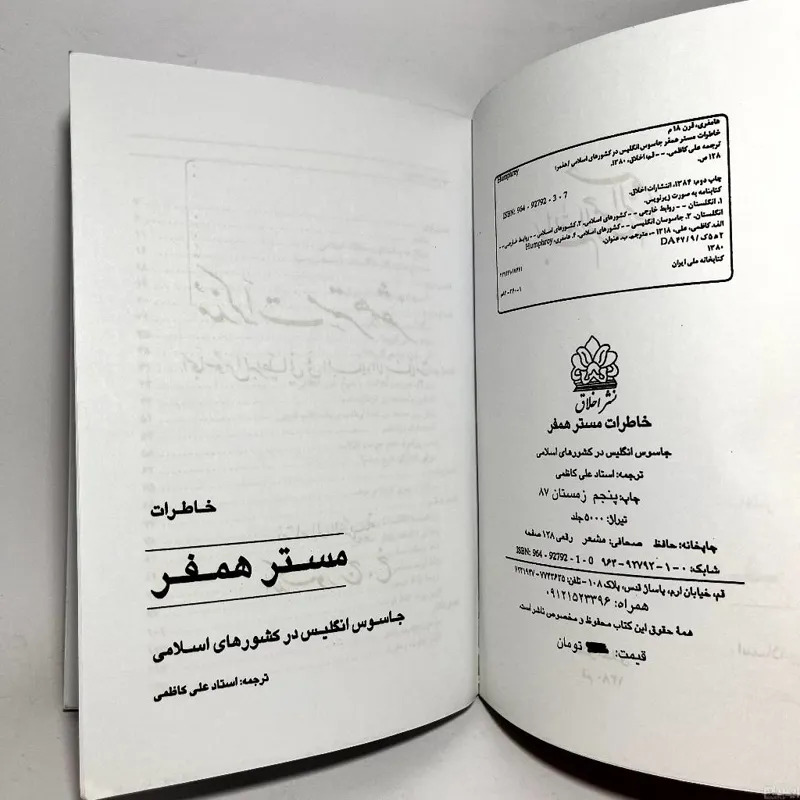 هامفری، قرن ۱۸ م
خاطرات مستر همفر جاسوس انگلیس در کشورهای اسلامی / همفر؛
ترجمه علی کاظمی. -- قم: اخلاق، ۱۳۸۰.
۱۲۸ ص.
Humphrey
ISBN: 964 - 92792 - 3 - 7
چاپ دوم: ۱۳۸۴، انتشارات اخلاق.
کتابنامه به صورت زیرنویس.
۱. انگلستان -- روابط خارجی -- کشورهای اسلامی. ۲. کشورهای اسلامی -- روابط خارجی --
انگلستان. ۳. جاسوسان انگلیسی -- کشورهای اسلامی. ۴. هامفری، Humphrey
الف. کاظمی، علی، ۱۳۱۸- مترجم. ب. عنوان.
۲ ه ۵ ک / ۹ / DA ۴۷
۱۳۸۰
کتابخانه ملی ایران
نشر اخلاق
خاطرات مستر همفر
جاسوس انگلیس در کشورهای اسلامی
ترجمه: استاد علی کاظمی
چاپ: پنجم زمستان ۸۷
تیراژ: ۵۰۰۰ جلد
چاپخانه: حافظ صحافی: مشعر رقعی ۱۲۸ صفحه
شابک: ۰ - ۱ - ۹۲۷۹۲ - ۹۶۴ ISBN: 964 - 92792 - 1 - 0
قم، خیابان ارم، پاساژ قدس، پلاک ۱۰۸ - تلفن: ۷۷۴۳۶۳۵ -
همراه: ۰۹۱۲۱۵۲۳۳۹۶
همهٔ حقوق این کتاب محفوظ و مخصوص ناشر است.
قیمت: تومان
خاطرات
مستر همفر
جاسوس انگلیس در کشورهای اسلامی
ترجمه: استاد علی کاظمی